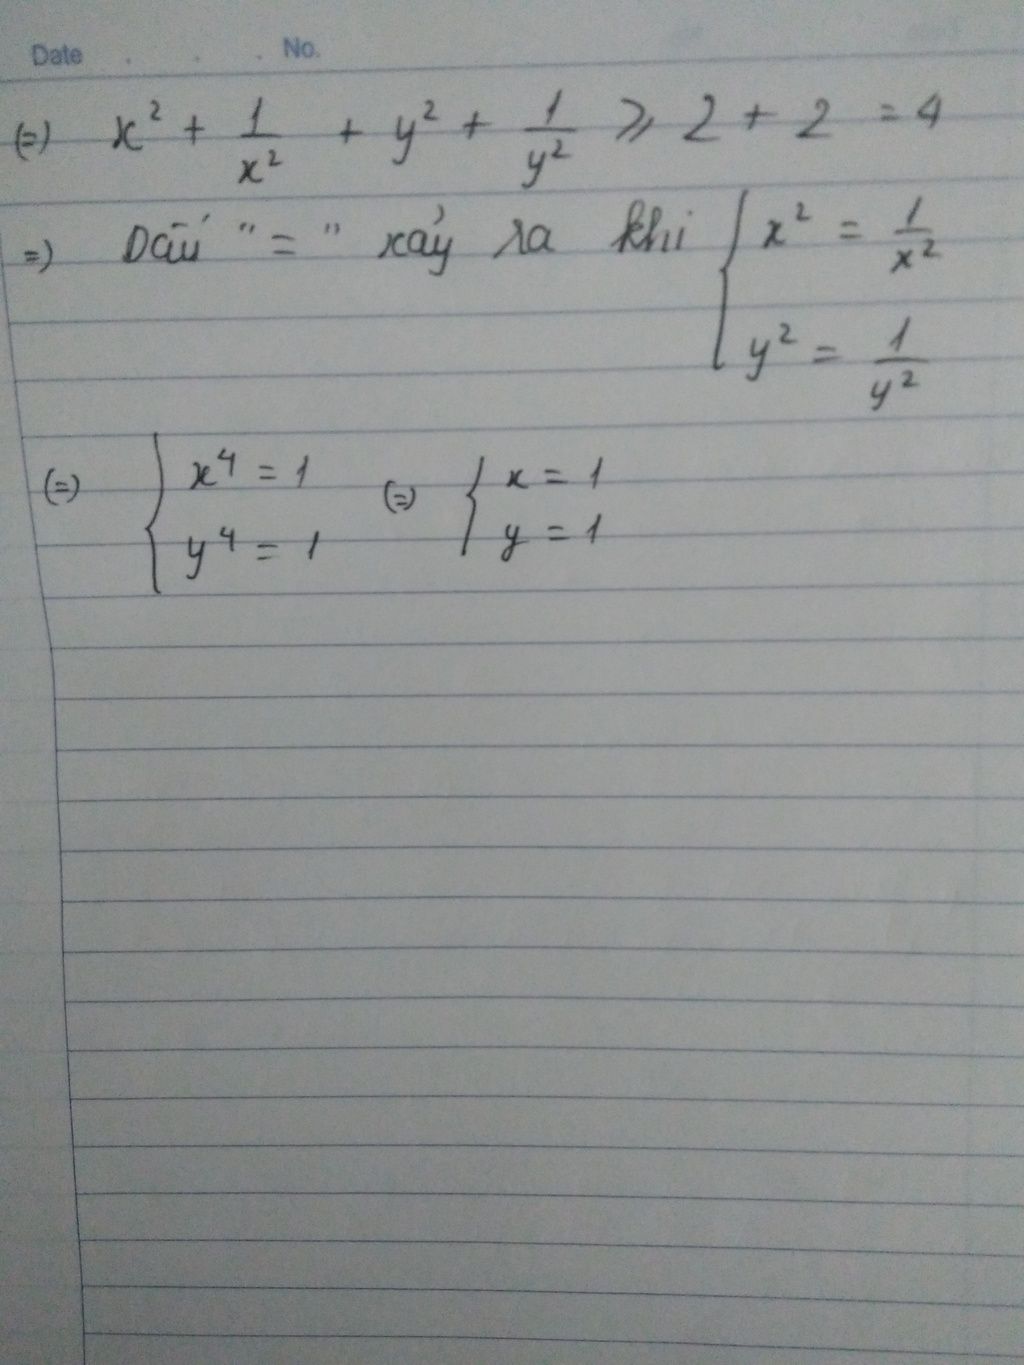 Date . . . No.
(=) x² + 1/x² + y² + 1/y² ⩾ 2 + 2 = 4
=) Dấu "=" xảy ra khi { x² = 1/x²
y² = 1/y²
(=) { x⁴ = 1 (=) { x = 1
y⁴ = 1 y = 1